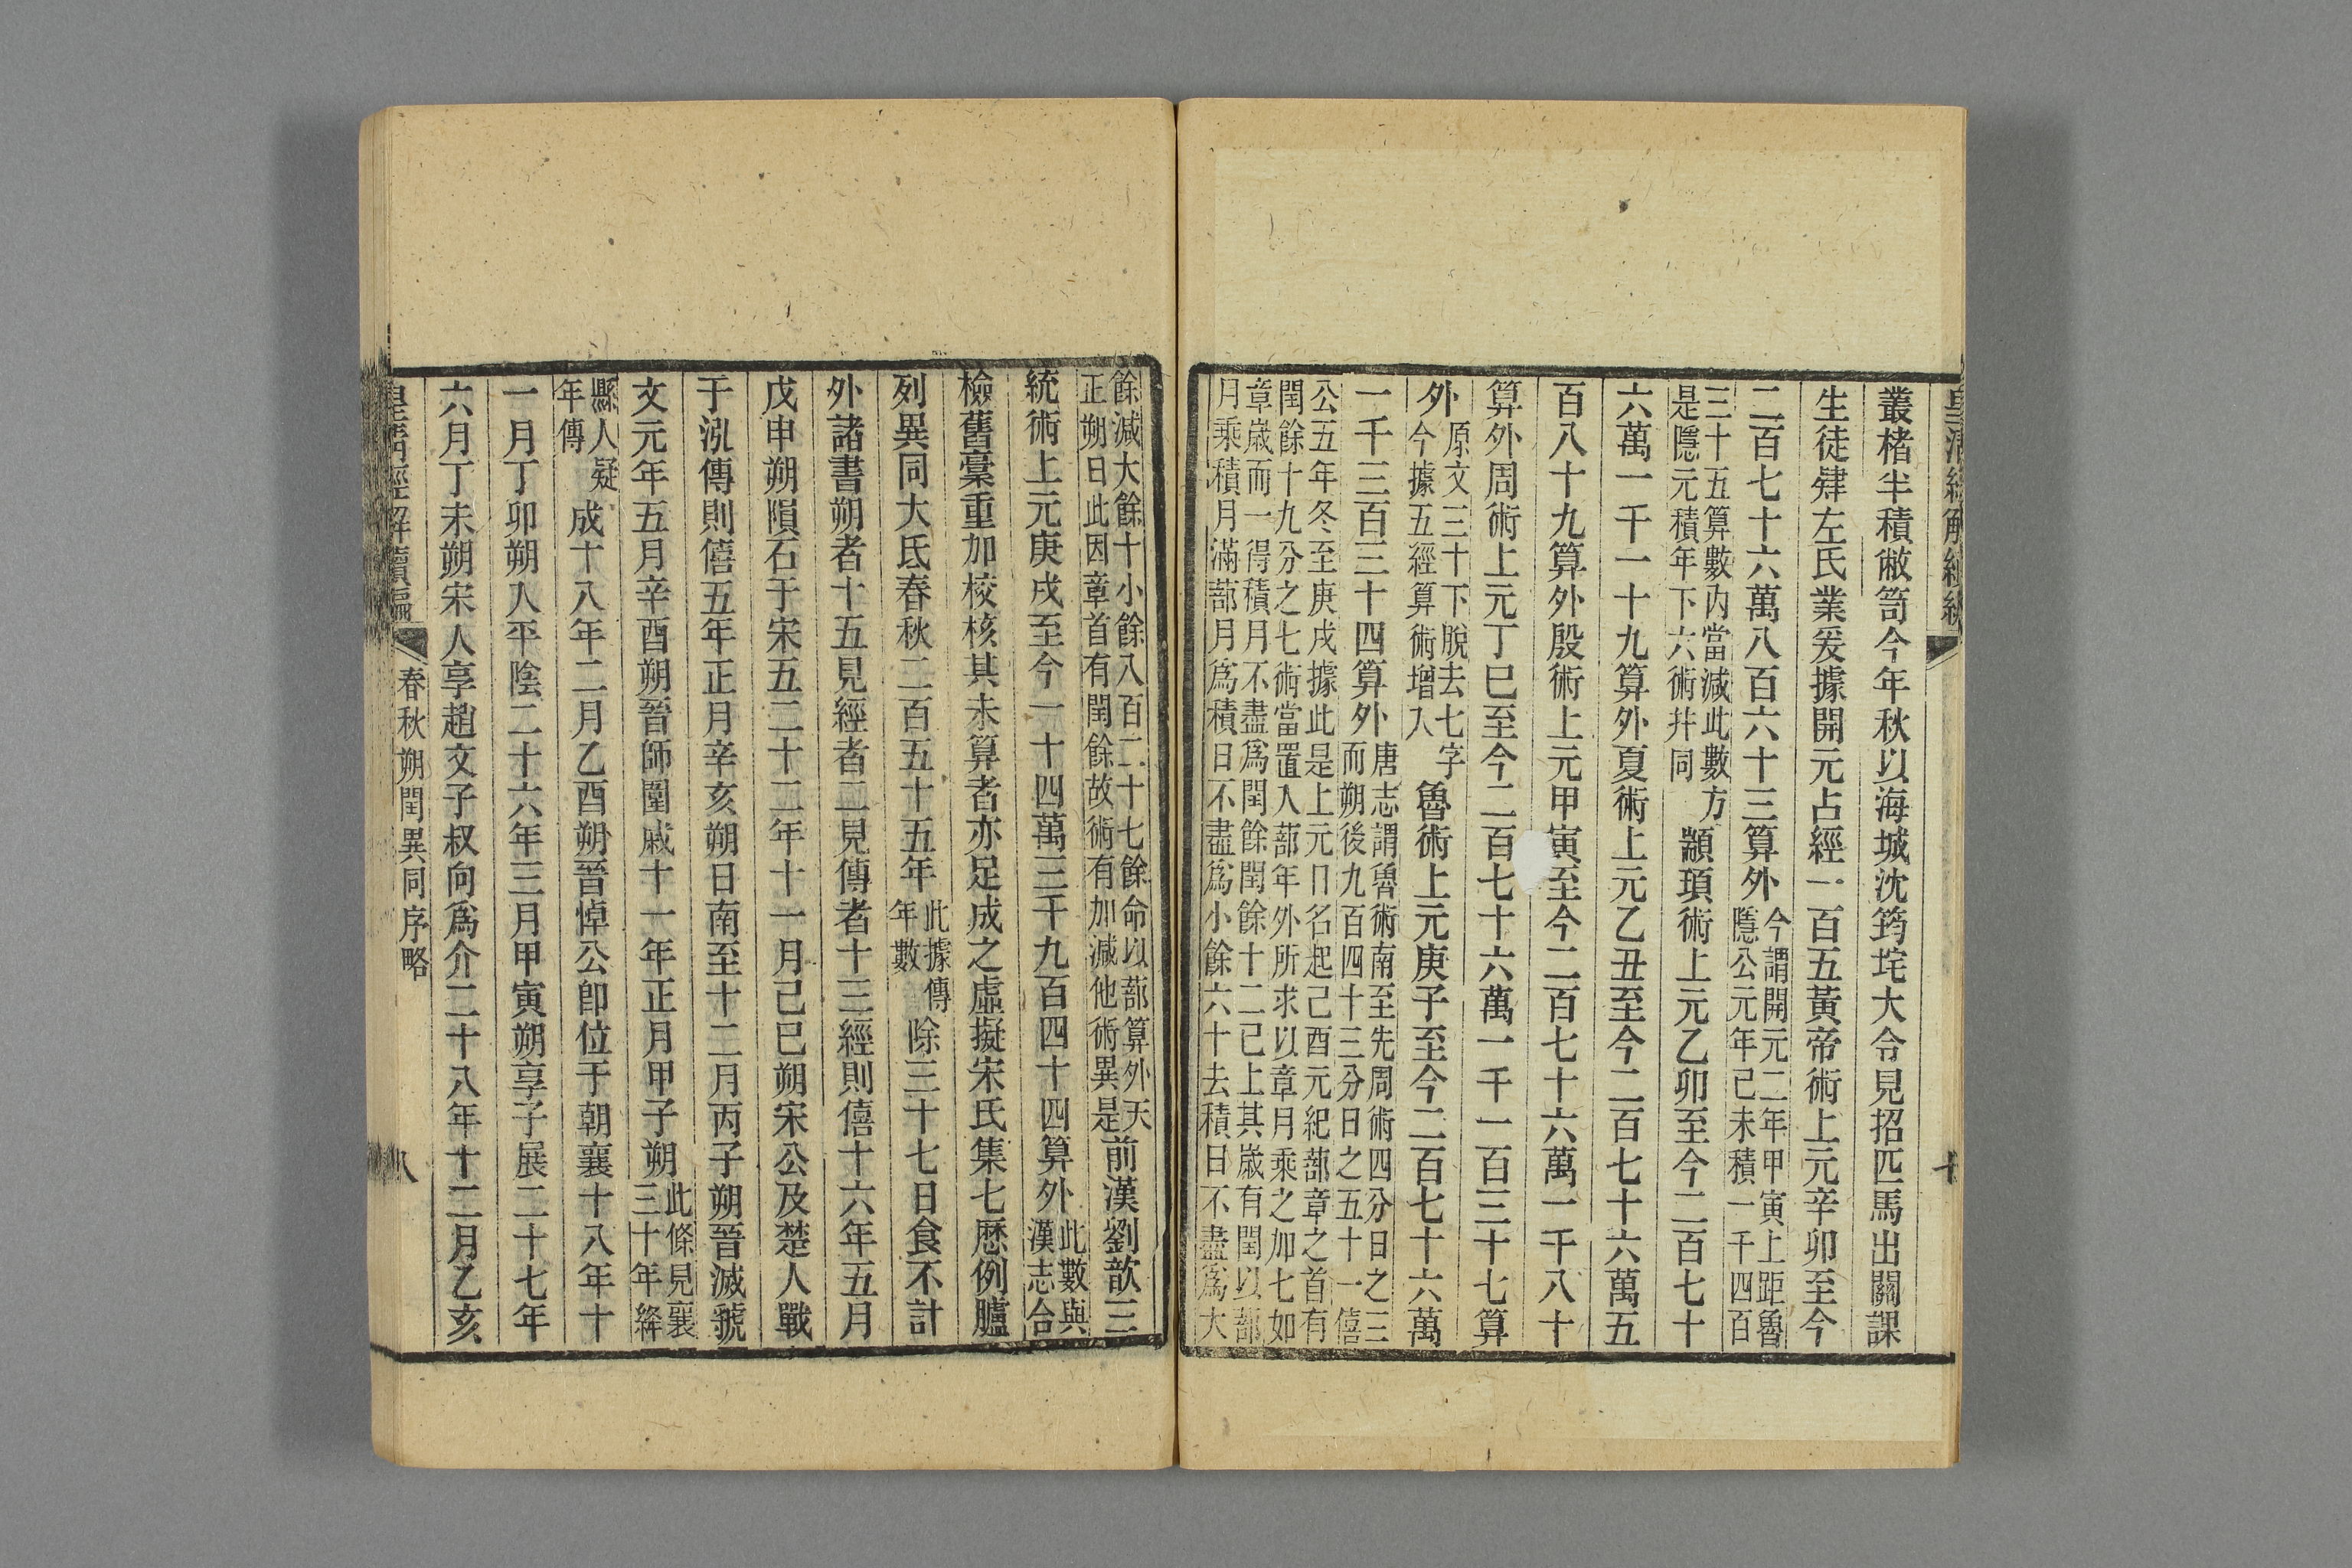 叢楮半積敝笥今年秋以海城沈筠垞大令見招匹馬出關課
生徒肄左氏業爰據開元占經一百五黃帝術上元辛卯至今
二百七十六萬八百六十三算外今謂開元二年甲寅上距魯
隱公元年己未積一千四百
三十五算數內當減此數方
是隱元積年下六術幷同顓頊術上元乙卯至今二百七十
六萬一千一十九算外夏術上元乙丑至今二百七十六萬五
百八十九算外殷術上元甲寅至今二百七十六萬一千八十
算外周術上元丁巳至今二百七十六萬一千一百三十七算
外原文三十下脫去七字
今據五經算術增入魯術上元庚子至今二百七十六萬
一千三百三十四算外唐志謂魯術南至先周術四分日之三
而朔後九百四十三分日之五十一僖
公五年冬至庚戌據此是上元日名起己酉元紀蔀章之首有
閏餘十九分之七術當置入蔀年外所求以章月乘之加七如
章歲而一得積月不盡爲閏餘閏餘十二已上其歲有閏以蔀
月乘積月滿蔀月爲積日不盡爲小餘六十去積日不盡爲大
餘減大餘十小餘八百二十七餘命以蔀算外天
正朔日此因章首有閏餘故術有加減他術異是前漢劉歆三
統術上元庚戌至今一十四萬三千九百四十四算外此數與
漢志合
檢舊稾重加校核其未算者亦足成之虛擬宋氏集七厯例臚
列異同大氐春秋二百五十五年此據傳
年數除三十七日食不計
外諸書朔者十五見經者二見傳者十三經則僖十六年五月
戊申朔隕石于宋五二十二年十一月己巳朔宋公及楚人戰
于泓傳則僖五年正月辛亥朔日南至十二月丙子朔晉滅虢
文元年五月辛酉朔晉師圍戚十一年正月甲子朔此條見襄
三十年絳
縣人疑
年傳成十八年二月乙酉朔晉悼公卽位于朝襄十八年十
一月丁卯朔入平陰二十六年三月甲寅朔享子展二十七年
六月丁未朔宋人享趙文子叔向爲介二十八年十二月乙亥
皇清經解續編 春秋朔閏異同序略 八